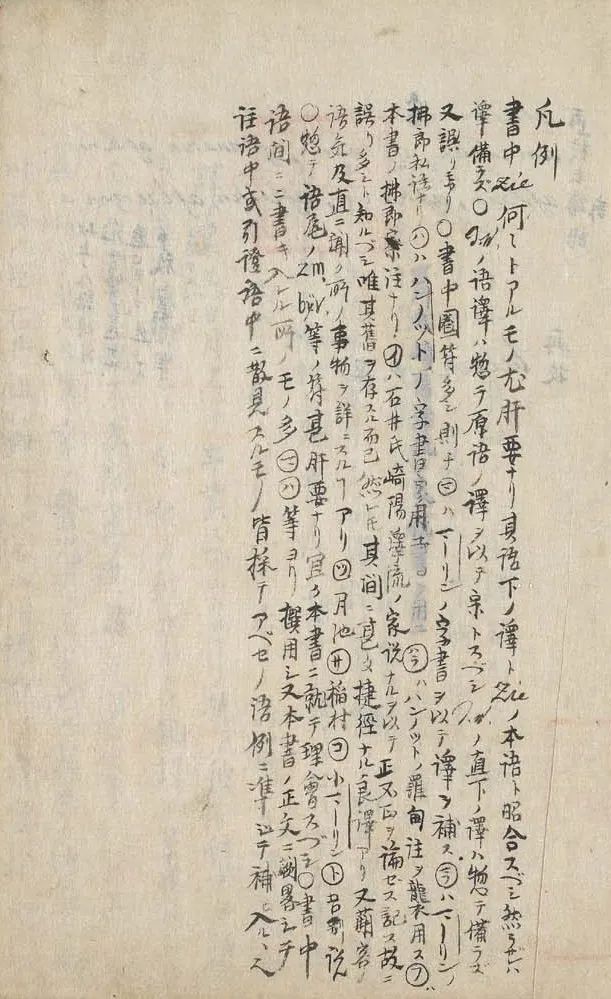 凡例
書中 Zie 何々トアルモノ尤肝要ナリ其語下ノ譯ト Zie ノ本語ト昭合スベシ然ラザレハ
譯備ラズ○ノ語譯ハ惣テ原語ノ譯ヲ以テ宗トスベシノ直下ノ譯ハ惣テ備ラズ
又誤リ有リ○書中圏符多シ則チ㋮ハマーリンノ字書ヲ以テ譯ヲ補ス㋮ラハマーリンノ
拂郎私語ナリ㋩ハハンノットノ字書ヲ用ユ㋩ラハハンノットノ羅甸注ヲ襲用ス㋫ハ
本書ノ拂郎察注ナリ㋑ハ石井氏崎陽譯流ノ家説ナルヲ以テ正不正ヲ論ゼス記ス故ニ
誤リ多シト知ルベシ唯其舊ヲ存スル而已然レ𪜈其間ニ甚タ捷徑ナル良譯アリ又蘭客ノ
語気及直ニ聞ク所ノ事物ヲ詳ニスルヿアリ㋡月池㋚稲村㋙小マーリン㋣吉剛説
○惣テ語尾ノ zm, bijv. 等ノ符甚肝要ナリ宜ク本書ニ就テ理會スベシ○書中
語間ニ書キ入レル所ノモノ多㋮㋩等ヨリ撰用シ又本書ノ正文ニ闕畧シテ
註語中或引證語中ニ散見スルモノ皆採テアベセノ語例ニ準シテ補ヒ入ルヽ也